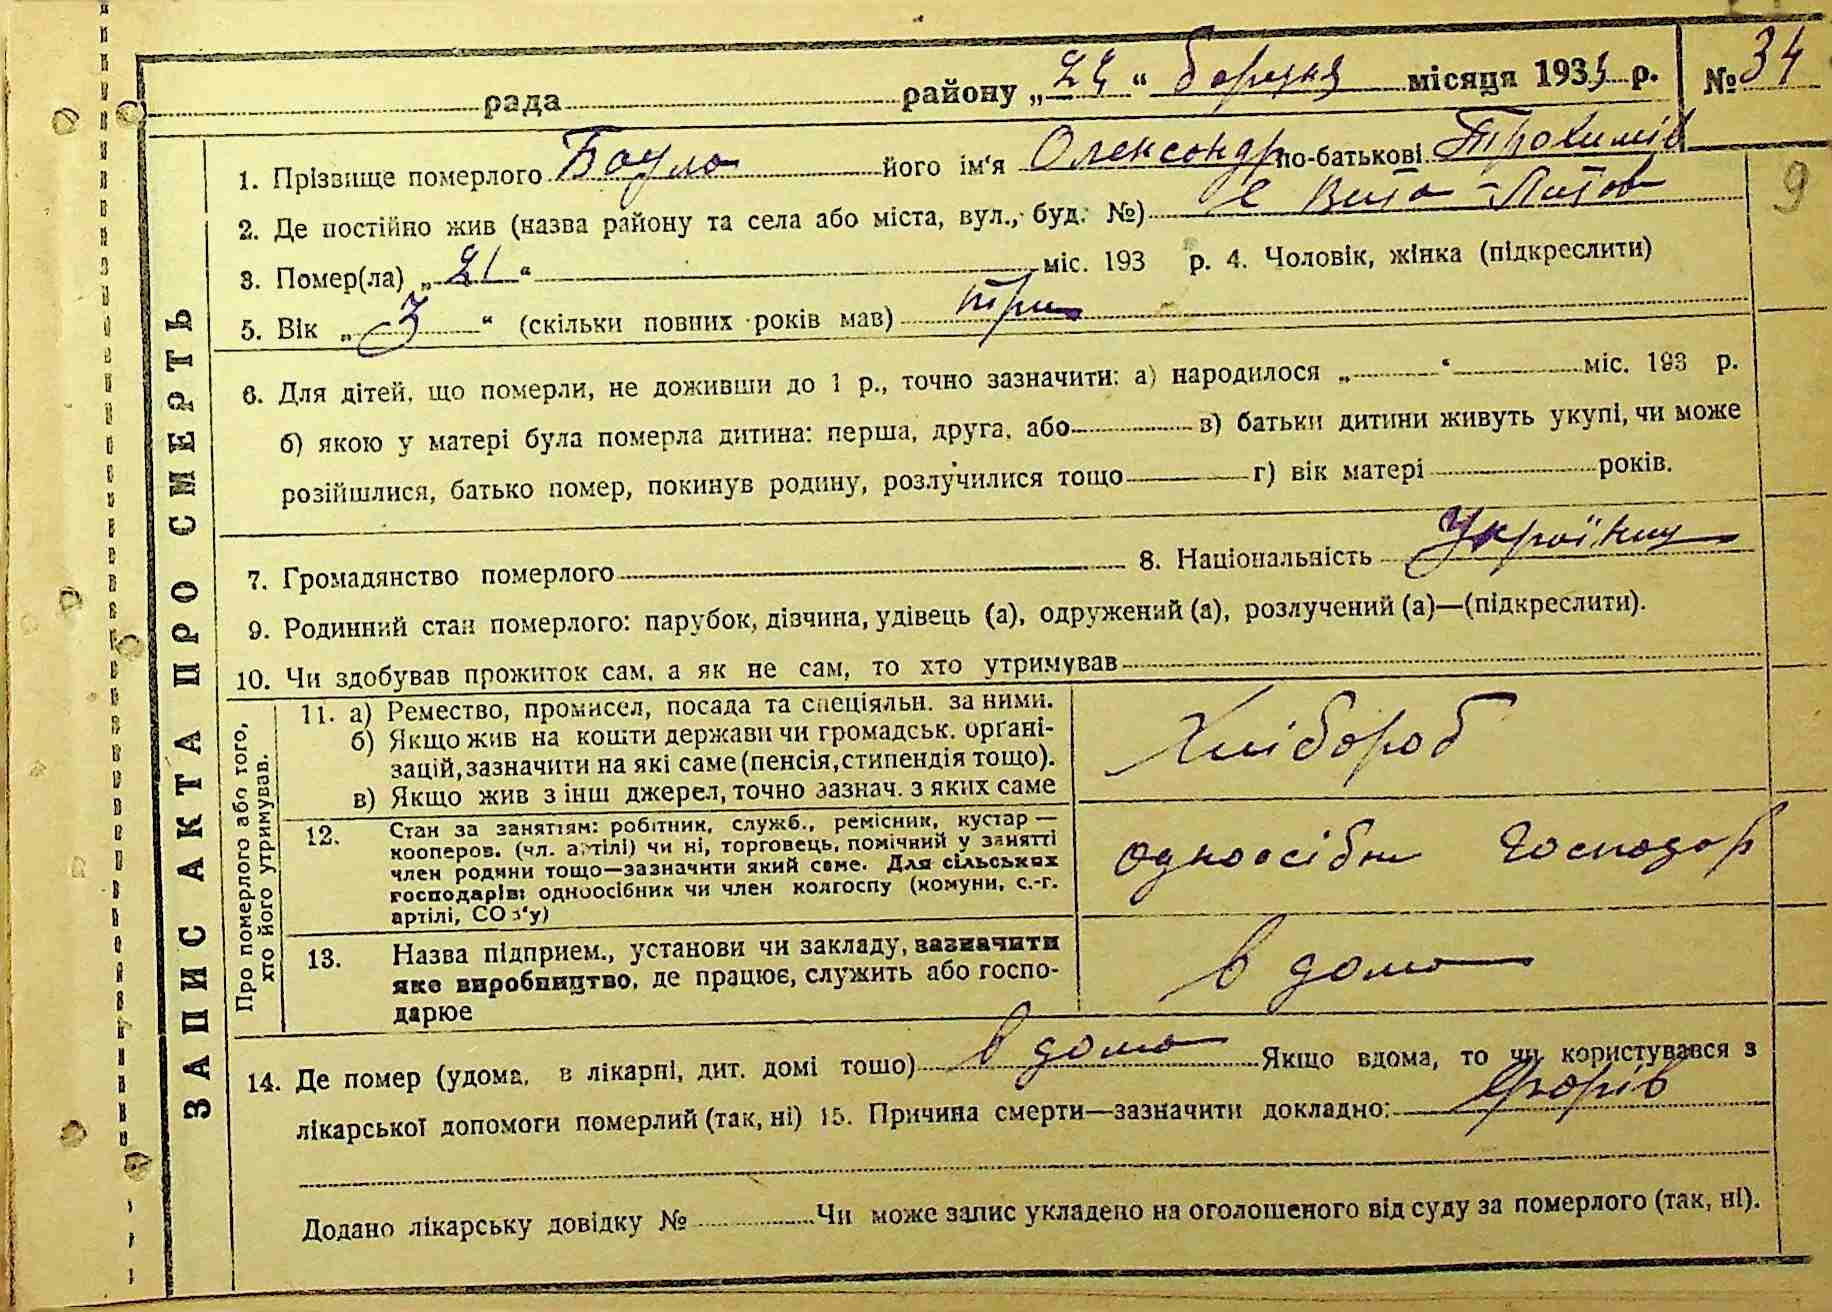 рада района району „24“ березня місяця 1933 р. № 34
1. Прізвище померлого Бауло його ім'я Олександр по-батькові Трохимів
9
2. Де постійно жив (назва району та села або міста, вул., буд. №) с Вита-Литов
3. Помер(ла) „21“ міс. 193 р. 4. Чоловік, жінка (підкреслити)
5. Вік „3“ (скільки повних років мав) три
6. Для дітей, що померли, не доживши до 1 р., точно зазначити: а) народилося „ “ міс. 193 р.
б) якою у матері була померла дитина: перша, друга, або в) батьки дитини живуть укупі, чи може
розійшлися, батько помер, покинув родину, розлучилися тощо г) вік матері років.
7. Громадянство померлого 8. Національність Українц
9. Родинний стан померлого: парубок, дівчина, удівець (а), одружений (а), розлучений (а)—(підкреслити).
10. Чи здобував прожиток сам, а як не сам, то хто утримував
ЗАПИС АКТА ПРО СМЕРТЬ
Про померлого або того,
хто його утримував.
11. а) Ремество, промисел, посада та спеціяльн. за ними.
б) Якщо жив на кошти держави чи громадськ. органі-
зацій, зазначити на які саме (пенсія, стипендія тощо).
в) Якщо жив з інш джерел, точно зазнач. з яких саме
Хлібороб
12. Стан за заняттям: робітник, служб., ремісник, кустар —
кооперов. (чл. артілі) чи ні, торговець, помічний у занятті
член родини тощо—зазначити який саме. Для сільських
господарів: одноосібник чи член колгоспу (комуни, с.-г.
артілі, СОЗ'у)
одноосібн господар
13. Назва підприєм., установи чи закладу, зазначити
яке виробництво, де працює, служить або госпо-
дарює
в дома
14. Де помер (удома, в лікарні, дит. домі тошо) в дома Якщо вдома, то чи користувався з
лікарської допомоги померлий (так, ні) 15. Причина смерти—зазначити докладно:
Додано лікарську довідку № Чи може запис укладено на оголошеного від суду за померлого (так, ні).